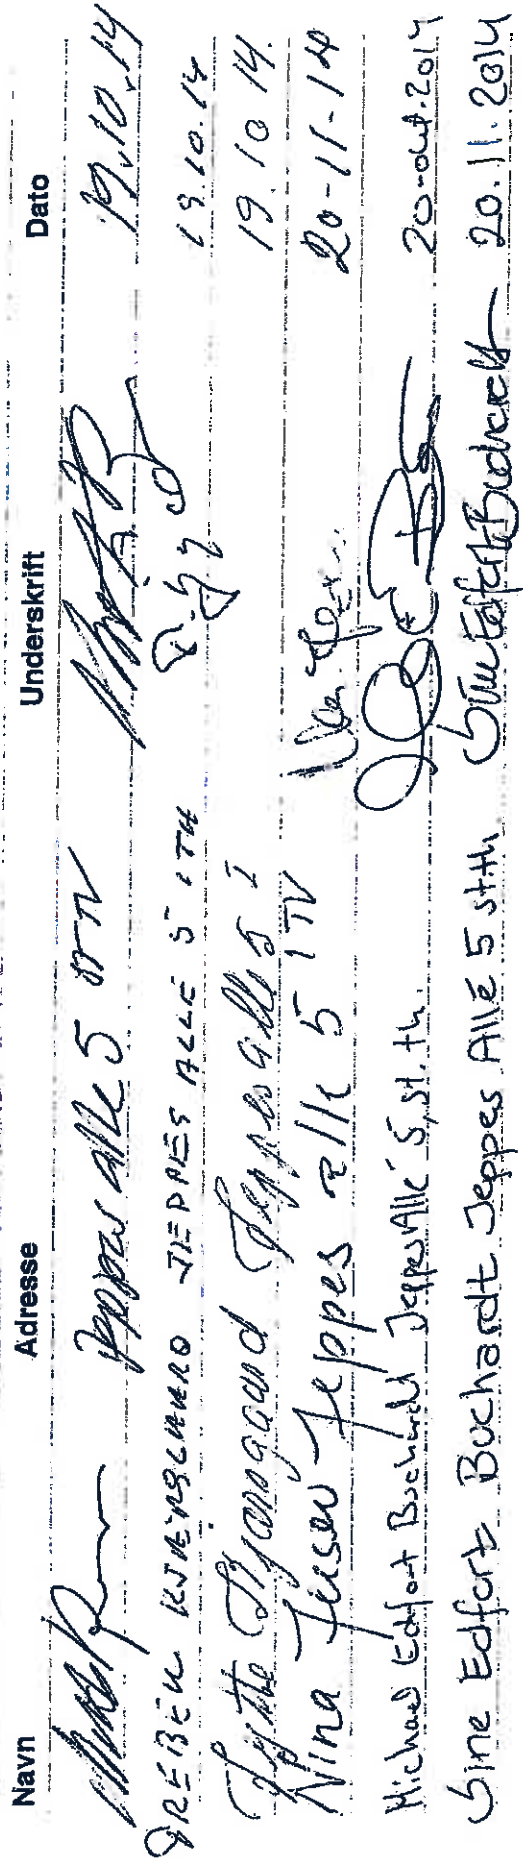 Navn Adresse Underskrift Dato
Jeppes alle 5 19.10.14
PREBEN KJÆRSGAARD JEPPES ALLE 5 1TH 19.10.14
Jytte Kjærsgaard Jeppes alle 5 I 19.10.14.
Nina Jensen Jeppes alle 5 1 TV 20-11-14
Michael Edfort Buchardt Jeppes Allé 5, st. th. 20-okt-2014
Sine Edfort Buchardt Jeppes Allé 5 st.th. Sine Edfort Buchardt 20.11.2014